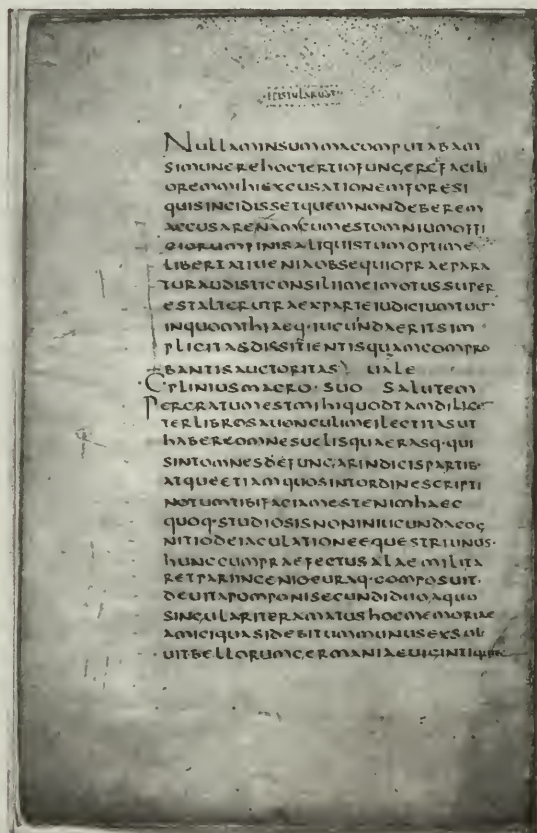 ·EPISTULARUM·
NULLAMINSUMMACOMPUTABAM
SIMUNEREHOCTERTIOFUNGEREFACILI
OREMMIHIEXCUSATIONEMFORESI
QUISINCIDISSETQUEMNONDEBEREM
ACCUSARENAMCUMESTOMNIUMOFFI
CIORUMFINISALIQUISTUMOPTIME
LIBERTATIUENIAOBSEQUIOPRAEPARA
TURAUDISTICONSILIIMEIMOTUSSUPER
ESTALTERUTRAEXPARTEIUDICIUMTUUM·
INQUOMIHIAEQ·IUCUNDAERITSIM
PLICITASDISSITIENTISQUAMCOMPRO
BANTISAUCTORITAS UALE
·C·PLINIUSMACRO·SUO SALUTEM
PERGRATUMESTMIHIQUODTAMDILIGEN
TERLIBROSAUONCULIMEILECTITASUT
HABEREOMNESUELISQUAERASQ·QUI
SINTOMNESDEFUNGARINDICISPARTIB·
ATQUEETIAMQUOSINTORDINESCRIPTI
NOTUMTIBIFACIAMESTENIMHAEC
QUOQ·STUDIOSISNONINIUCUNDACOG
NITIODEIACULATIONEEQUESTRIUNUS·
HUNCCUMPRAEFECTUSALAEMILITA
RETPARIINGENIOCURAQ·COMPOSUIT·
DEUITAPOMPONISECUNDIDUOAQUO
SINGULARITERAMATUSHOCMEMORIAE
AMICIQUASIDEBITUMMUNUSEXSOL
UITBELLORUMGERMANIAEUIGINTI